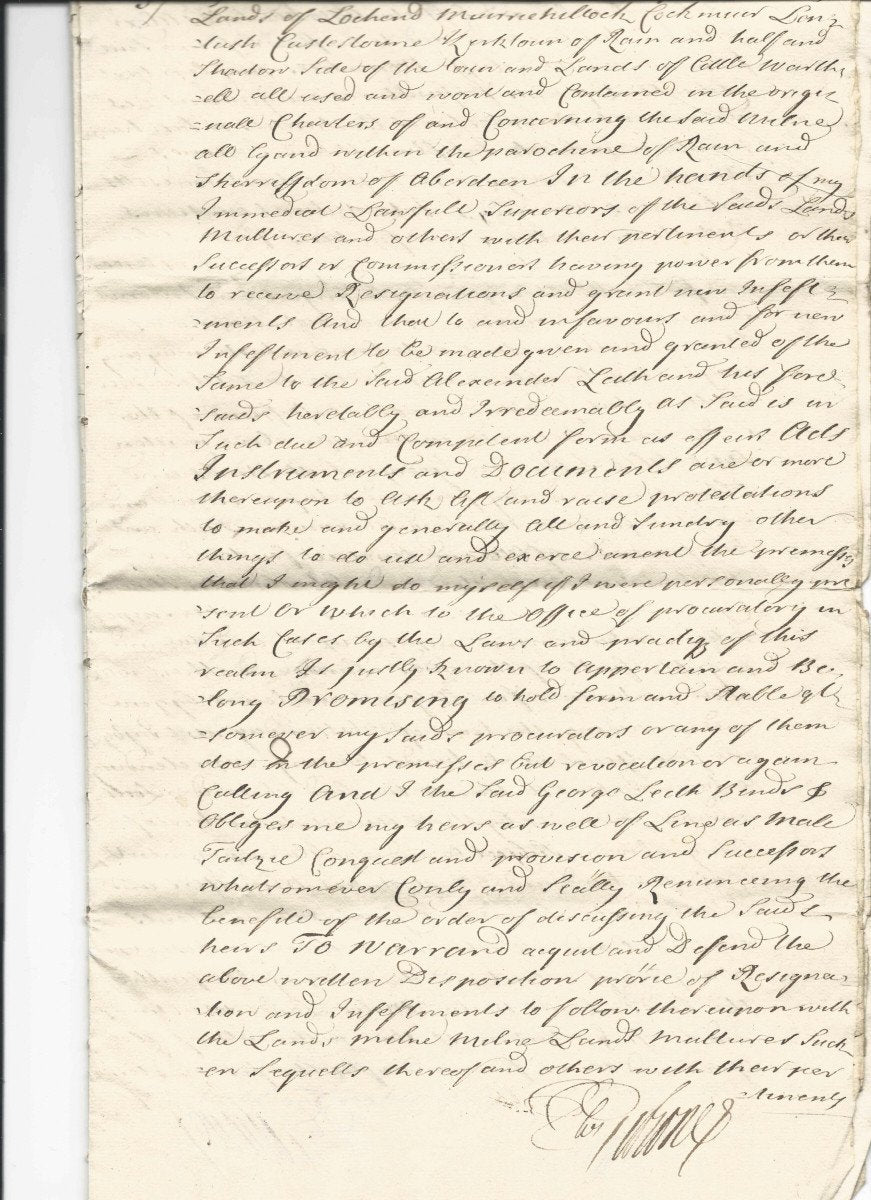 Lands of Lochend Murriehillock Cockmuir Lon=
=tash Castletoune Kirktoun of Rain and half and
Shadow Side of the toun and Lands of Little Warth=
=ell all used and wont and Contained in the origi=
=nall Charters of and Concerning the Said Milne
all lyand within the parochine of Rain and
Sherriffdom of Aberdeen In the hands of my
Immediat Lawfull Superiors of the Saids Lands
Multures and others with their pertinents or their
Successors or Commissioners having power from them
to receive Resignations and grant new Infeft=
=ments And that to and in favours and for new
Infeftment to be made given and granted of the
Same to the Said Alexander Leith and his fore
=saids heredally and Irredeemably as Said is in
Such due and Competent form as effeirs Acts
Instruments and Documents ane or more
thereupon to Ask lift and raise protestations
to make and generally All and Sundry other
things to do use and exerce anent the premisses
that I might do myself if I were personally pre
=sent Or Which to the Office of procuratory in
Such Cases by the Laws and practiq of this
realm Is justly Known to Appertain and Be=
=long Promising to hold firm and Stable qt=
=somever my Saids procurators or any of them
does in the premisses but revocation or again
Calling And I the Said George Leith Binds &
Obliges me my heirs as well of Line as Male
Tailzie Conquest and provision and Successors
whatsomever Conlly and Seallly Renuncing the
benefite of the order of discussing the Saids
heirs To Warrand acquit and Defend the
above written Disposition prorie of Resigna=
=tion and Infeftments to follow thereupon with
the Lands Milne Milne Lands Multures Suck=
=en Sequells thereof and others with their per
=tinents